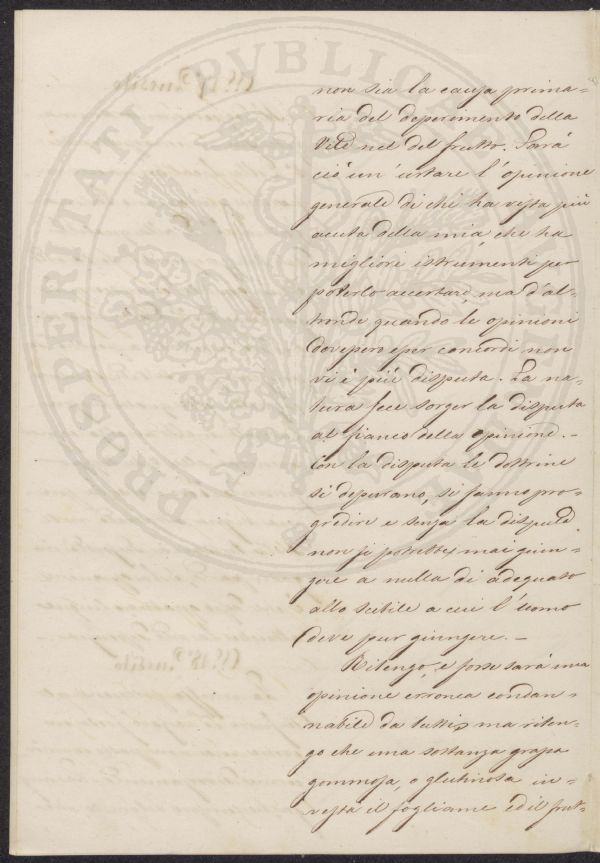 non sia la causa prima=
ria del deperimento della
Vite nel del frutto. Sarà
ciò un'urtare l'opinione
generale di chi ha vista più
acuta della mia, che ha
migliori istrumenti per
poterlo accertare, ma d'al=
tronde quando le opinioni
dovessero esser concordi non
vi è più disputa. La na=
tura fece sorger la disputa
al fianco della opinione. –
Con la disputa le dottrine
si depurano, si fanno pro=
gredire e senza la disputa
non si potrebbe mai giun=
gere a nulla di adeguato
allo scibile a cui l'uomo
deve pur giungere. –
Ritengo, e forse sarà una
opinione erronea condan=
nabile da tutti, ma riten=
go che una sostanza grassa
gommosa, o glutinosa in=
vesta il fogliame ed il frut=
PROSPERITATI PUBLICAE